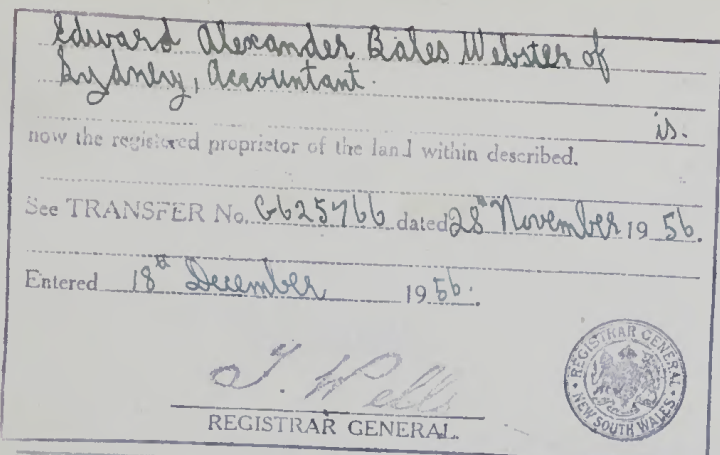 Edward Alexander Bates Webster of
Sydney, Accountant.
is.
now the registered proprietor of the land within described.
See TRANSFER No. G625766 dated 28th November 1956.
Entered 18th December 1956.
J. Wells
REGISTRAR GENERAL.
REGISTRAR GENERAL
NEW SOUTH WALES